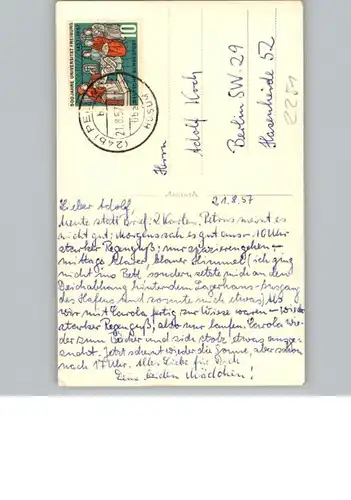 500 JAHRE UNIVERSITÄT FREIBURG
10
21.8.57
(24b)
HUSUM
Herrn
Adolf Koch
Berlin SW-29
Hasenheide 52
21.8.57
Lieber Adolf
heute statt Brief: 2 Karten. Petrus meint es
nicht gut: Morgens sah es gut aus - 10 Uhr
starker Regenguß; nur spazierengehen -
mittags klarer, blauer Himmel (ich ging
nicht ins Bett sondern setzte mich an den
Deichabhang hinter dem Lagerhaus-Ausgang
des Hafens und sonnte mich etwas) Als
wir mit Carola fertig zur Wiese waren - wieder
starker Regenguß, also nur laufen. Carola wie-
der zum Bäcker und sich etwas
Jetzt scheint wieder die Sonne, aber schon
nach 17 Uhr. Alles Liebe für Dich
Deine beiden Mädchen!